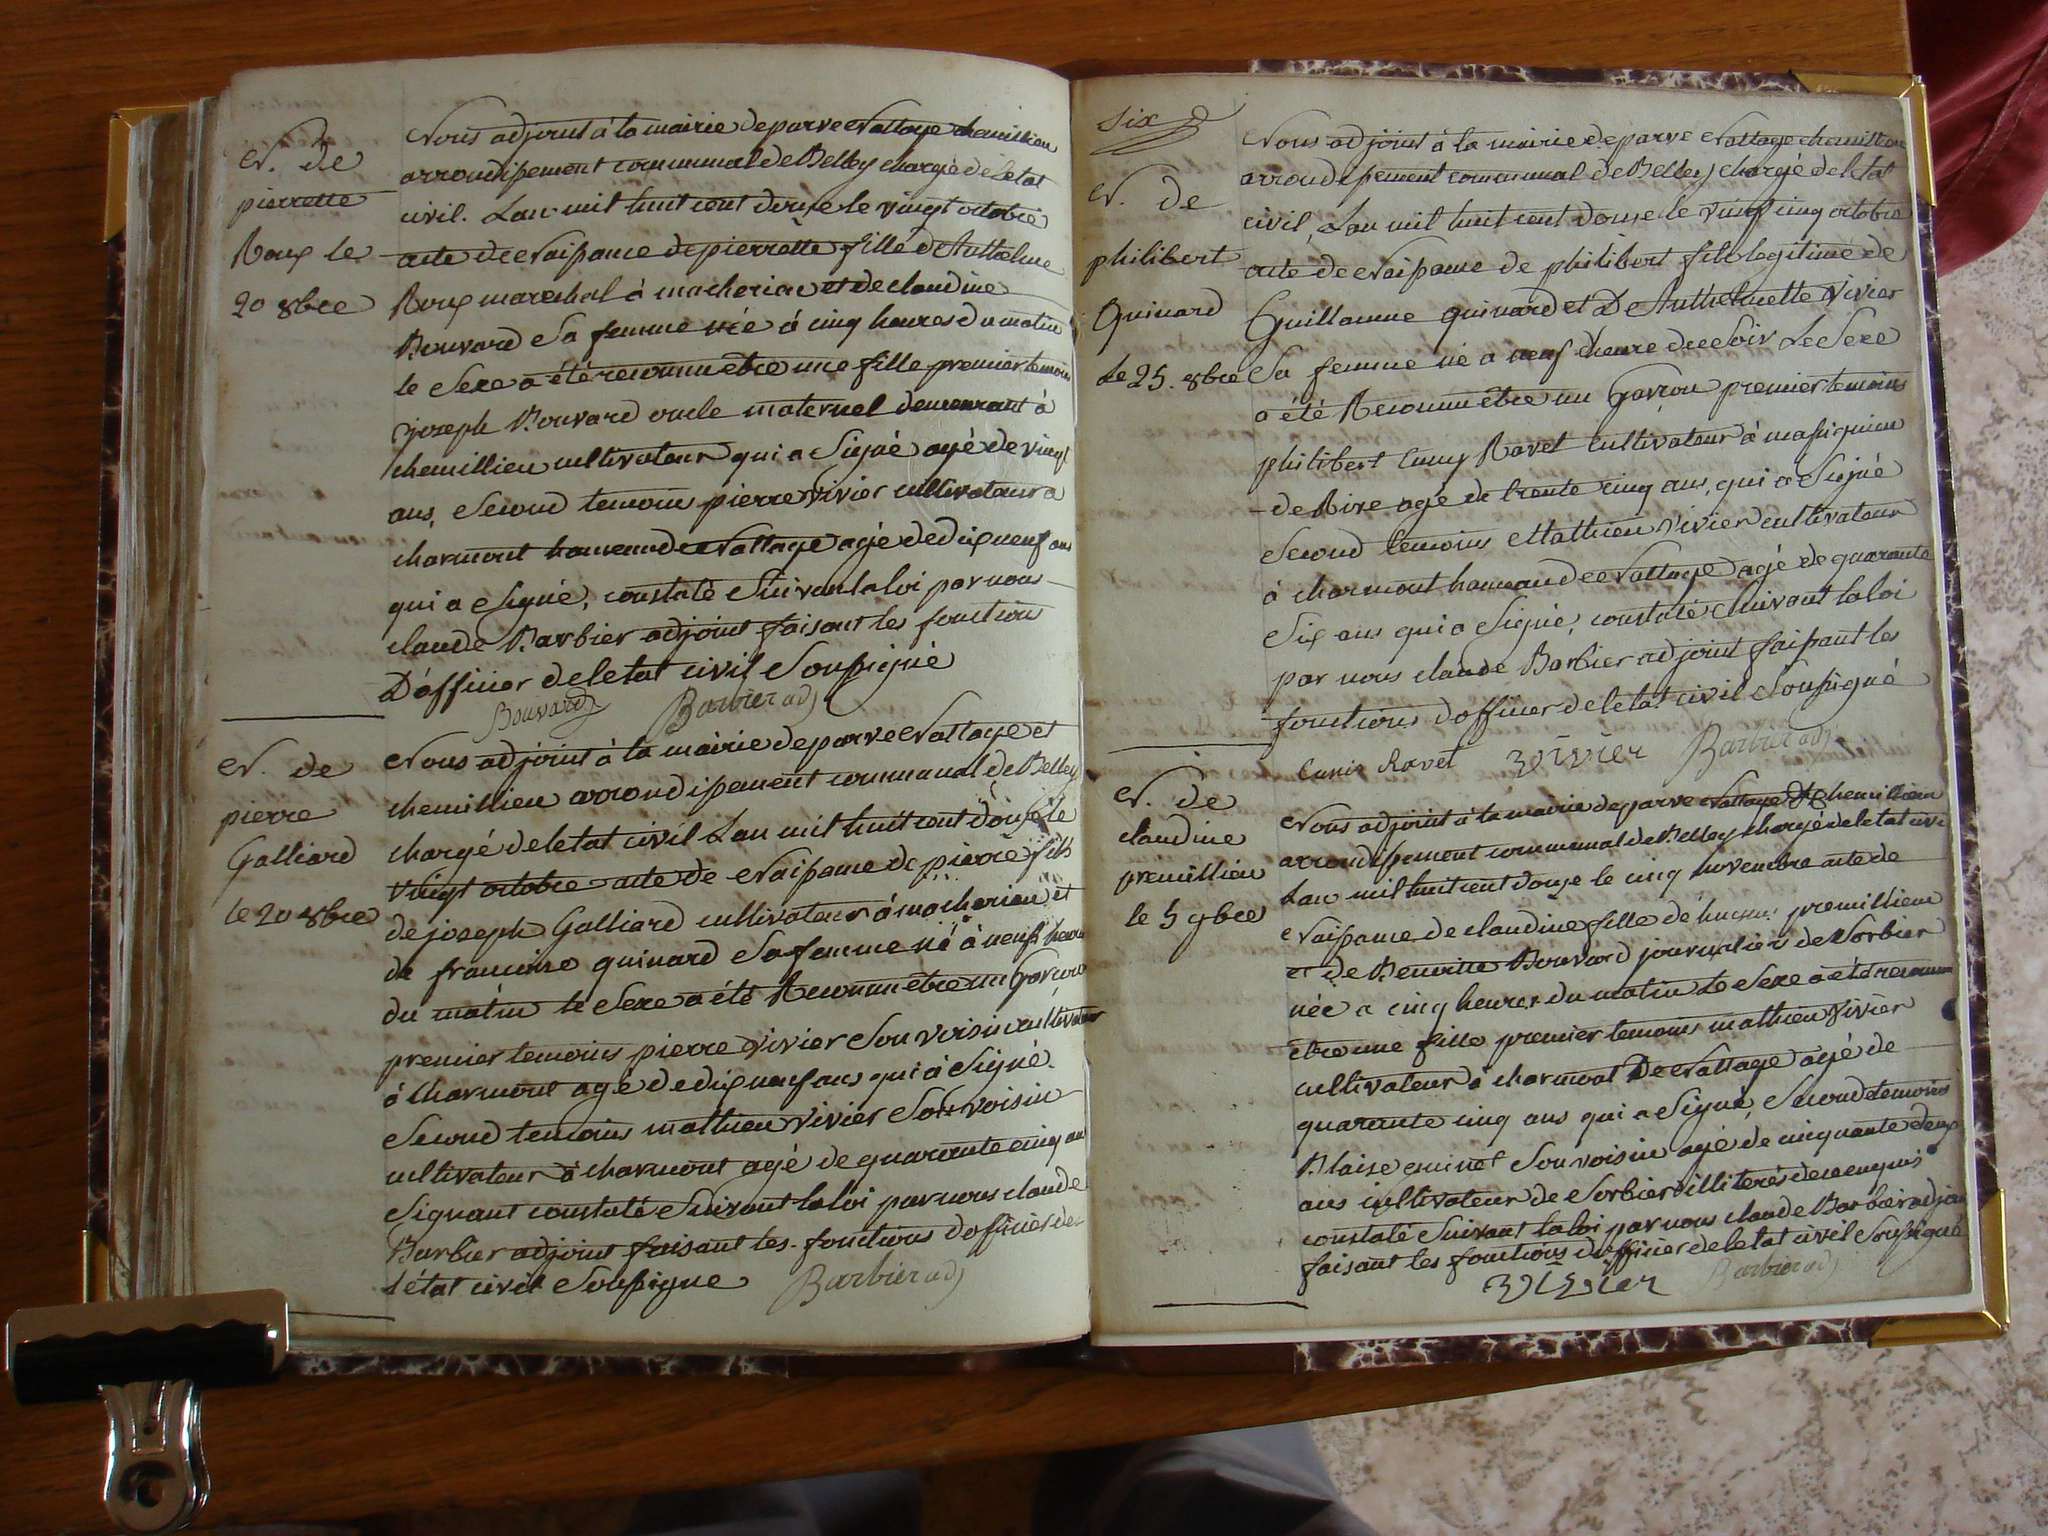 N. de
pierrette
Roux le
20 8bre
Nous adjoint à la mairie de parve Nattage chemillieu
arrondissement communal de Belley chargé de letat
civil. Lan mil huit cent douze le vingt octobre
acte de Naissance de pierrette fille de Anthelme
Roux marechal à macherieu et de claudine
Bouvard Sa femme née à cinq heures du matin
le Sexe a été reconnu être une fille premier temoins
joseph Bouvard oncle maternel demeurant à
chemillieu cultivateur qui a Signé agé de vingt
ans, Second temoins pierre Vivier cultivateur a
charmont hameau de Nattage agé de dix neuf ans
qui a Signé, constaté Suivant la loi par nous
claude Barbier adjoint faisant les fonction
D'officier de letat civil Soussigné
Bouvard Barbier adj
N. de
pierre
Galliard
le 20 8bre
Nous adjoint à la mairie de parve Nattage et
chemillieu arrondissement communal de Belley
chargé de letat civil Lan mil huit cent douze le
vingt octobre acte de Naissance de pierre fils
de joseph Galliard cultivateur à macherieu et
de francoise guinard Sa femme né à neuf heures
du matin le Sexe a été Reconnu être un Garcon
premier temoins pierre Vivier Son voisin cultivateur
à Charmont agé de dix neuf ans qui à Signé.
Second temoins mathieu Vivier Son voisin
cultivateur à charmont agé de quarante cinq ans
Signant constaté Suivant la loi par nous claude
Barbier adjoint faisant les fonctions dofficier de
l'état civil Soussigne Barbier adj
Six
N. de
philibert
Guinard
Le 25. 8bre
Nous adjoint à la mairie de parve Nattage chemillieu
arrondissement communal de Belley chargé de letat
civil, Lan mil huit cent douze le vingt cinq octobre
acte de Naissance de philibert fils legitime de
Guillaume guinard et De Anthelmette Vivier
Sa femme né a neuf heure de Soir Le Sexe
a été Reconnu être un Garcon premier temoins
philibert Cuny Ravet Cultivateur à massignieu
de Rive agé de trente cinq ans, qui a Signé
Second temoins Mathieu Vivier cultivateur
à charmont hameau de Nattage agé de quarante
Six ans qui a Signé, constaté Suivant la loi
par nous claude Barbier adjoint faisant les
fonctions dofficier de letat civil Soussigné
Ravet Vivier Barbier adj
N. de
claudine
premillieu
le 5 9bre
Nous adjoint à la mairie de parve Nattage et chemillieu
arrondissement communal de Belley chargé de letat civil
Lan mil huit cent douze le cinq novembre acte de
Naissance de claudine fille de premillieu
et de Benoitte Bouvard journalier de Sorbier
née a cinq heures du matin Le Sexe a été reconnu
être une fille premier temoins mathieu Vivier
cultivateur à charmont De Nattage agé de
quarante cinq ans qui a Signé, Second temoins
Blaise guinet Son voisin agé de cinquante deux
ans cultivateur de Sorbier illiterés de ce enquis
constaté Suivant la loi par nous claude Barbier adjoint
faisant les fonctions dofficier de letat civil Soussigné
Vivier Barbier adj